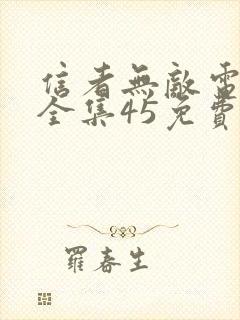 信者無敵電
全集45免費
羅春生